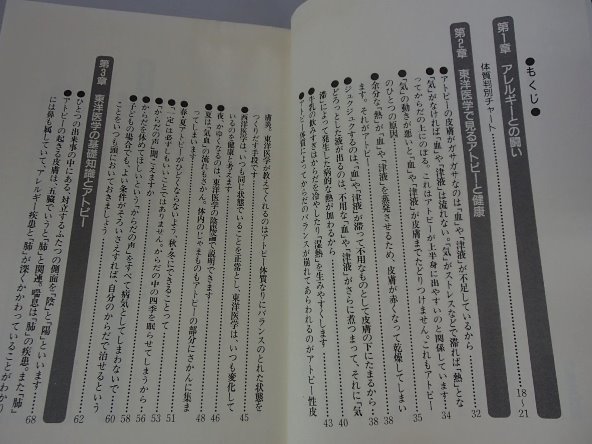 ●もくじ●
第1章 アレルギーとの闘い
体質判別チャート……18〜21
第2章 東洋医学で見るアトピーと健康
●アトピーの皮膚がガサガサなのは「血」や「津液」が不足しているから……32
●「気」がなければ「血」や「津液」は流れない。「気」がストレスなどで滞れば「熱」となってからだの上にのぼる。これはアトピーが上半身に出やすいのと関係しています……34
●「気」の動きが悪いと「血」や「津液」が皮膚までたどりつけません。これもアトピーのひとつの原因……35
●余分な「熱」が「血」や「津液」を蒸発させるため、皮膚が赤くなって乾燥してしまいます。それがアトピー……38
●ジュクジュクするのは、「血」や「津液」が滞って不用なものとして皮膚の下にたまるから……38
●どろっとした液が出るものは、不用な「血」や「津液」がさらに煮つまって、それに「気滞」によって発生した病的な熱が加わるから……40
●牛乳の飲みすぎはからだを冷やしたり「湿熱」を生みやすくします……43
●アトピー体質によってからだのバランスが崩れてあらわれるのがアトピー性皮
膚炎。東洋医学が教えてくれるのはアトピー体質なりにバランスのとれた状態をつくりだす手段です……45
●西洋医学は、いつも同じ状態でいることを正常とし、東洋医学は、いつも変化しているのを健康と考えます……46
●夜、かゆくなるのは、東洋医学の陰陽論で説明できます……48
●夏は「気血」の流れもさかん。体内のじゃまものもアトピーの部分にさかんに集まってしまいます……48
●春、アトピーがひどくならないよう、秋、冬にできることって……51
●「一定」は必ずしもいいことではありません。からだの中の四季を眠らせてしまうから……53
●からだの声、聞こえますか……56
●からだを休めてほしいという「からだの声」をすべて病気としてしまわないで……58
●子どもの場合でも、よい条件がそろいさえすれば、自分のからだで治せるということをいつも頭においておきましょう……60
第3章 東洋医学の基礎知識とアトピー
●ひとつの出来事の中にある、対立するふたつの側面を「陰」と「陽」といいます……62
●アトピーの起きる皮膚は、五臓でいうと「肺」と関連。喘息は「肺」の疾患。また「肺」には鼻も属していて、アレルギー疾患と「肺」が深くかかわっていることがわかり……68